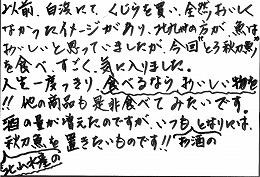 以前、白浜にて、くじらを買い、全然おいしく
なかったイメージがあり、北九州の方が、魚は
おいしいと思っていましたが、今回"とろ秋刀魚"
を食べ、すごく、気に入りました。
人生一度っきり、食べるなら、おいしい物を
!! 他の商品も是非食べてみたいです。
酒の量が増えたのですが、いつも、となりには、
秋刀魚を置きたいものです!! お酒の
北山水産の